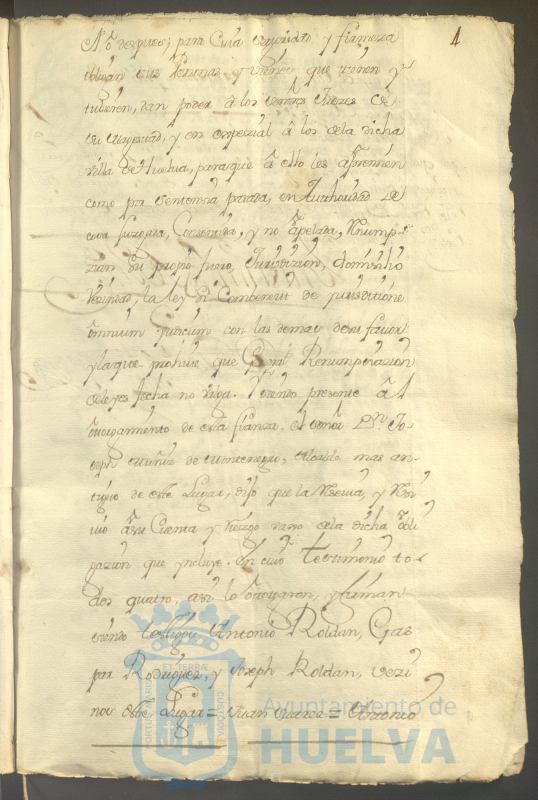 4
N.º despues; para Cuia seguridad y firmeza
obligan sus Personas, y vienes que tienen y
tubieren, dan poder â los señores Juezes de
su Magestad, y en especial â los dela dicha
villa de Huelua, para que â ello les apremien
como por sentencia pasada, en Authoridad de
cosa juzgada, Consentida, y no apelada, Renump-
zian su propio fuero, Jurisdizion, domisilio
Vezindad, la ley si Combenerit de jurisditione
omnium Judicum con las demas desu favor
y la que prohiue que General Renumpciazion
de leyes fecha no valga. Y siendo presente â l
otorgamiento de esta fianza, el señor Dn. Jo-
seph Muñiz de Montenegro, Alcalde mas an-
tiguo de este Lugar, dijo que la Reseuia, y Resi-
uio â su Cuenta y riezgo dela dicha obli
gazion que yncluye. En cuio testimonio to-
dos quatro, asi lo otorgaron, y firman
siendo testigos, Antonio Roldan, Gas
par Rodriguez, y Joseph Roldan, vezi
nos deste Lugar = Juan Suarez = Antonio
PORTUS MARIS ET TERRÆ CUSTODIA
Ayuntamiento de
HUELVA